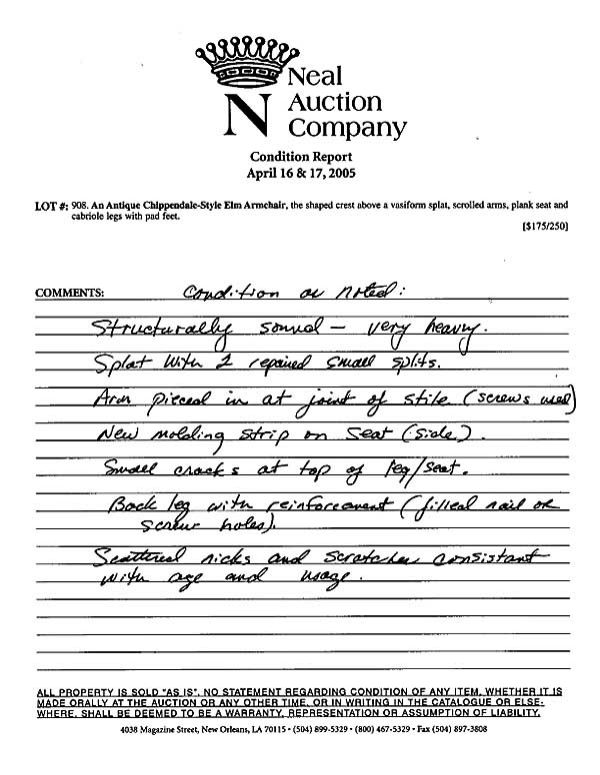 Neal
N Auction
Company
Condition Report
April 16 & 17, 2005
LOT #: 908. An Antique Chippendale-Style Elm Armchair, the shaped crest above a vasiform splat, scrolled arms, plank seat and
cabriole legs with pad feet.
[$175/250]
COMMENTS: Condition as noted:
Structurally sound - very heavy.
Splat with 2 repaired small splits.
Arm pieced in at joint of stile (screws used)
New molding strip on seat (side).
Small cracks at top of leg/seat.
Back leg with reinforcement (filled nail or
screw holes).
Scattered nicks and scratches consistant
with age and usage.
ALL PROPERTY IS SOLD "AS IS". NO STATEMENT REGARDING CONDITION OF ANY ITEM, WHETHER IT IS
MADE ORALLY AT THE AUCTION OR ANY OTHER TIME, OR IN WRITING IN THE CATALOGUE OR ELSE-
WHERE, SHALL BE DEEMED TO BE A WARRANTY, REPRESENTATION OR ASSUMPTION OF LIABILITY.
4038 Magazine Street, New Orleans, LA 70115 • (504) 899-5329 • (800) 467-5329 • Fax (504) 897-3808